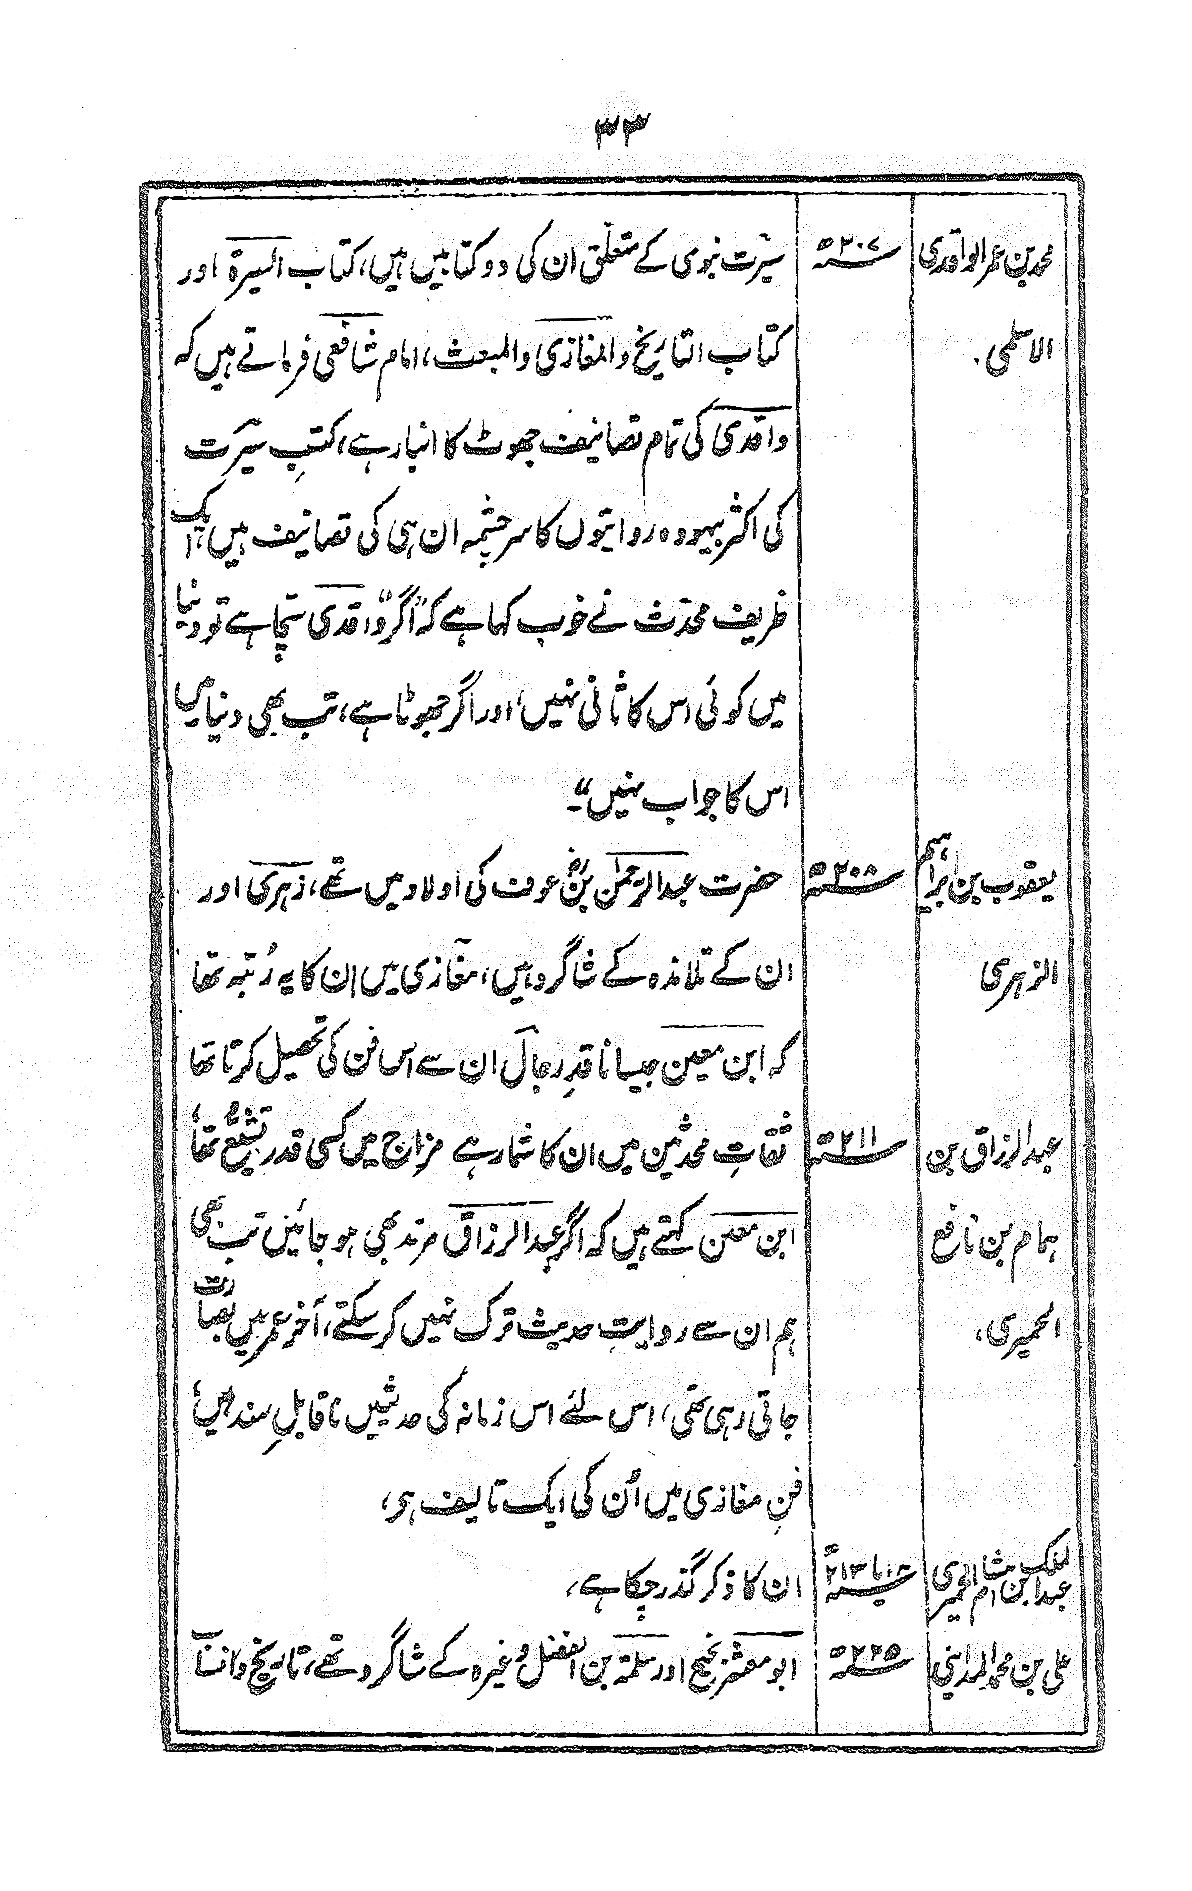 ۳۳
محمد بن عمر الواقدی ۲۰۷ھ سیرت نبوی کے متعلق ان کی دو کتابیں ہیں، کتاب السیرۃ اور
الاسلمی۔ کتاب التاریخ والمغازی والمبعث، امام شافعی فرماتے ہیں کہ
واقدی کی تمام تصانیف جھوٹ کا انبار ہے، کتبِ سیرت
کی اکثر بیہودہ روایتوں کا سرچشمہ ان ہی کی تصانیف ہیں، ایک
ظریف محدث نے خوب کہا ہے کہ "اگر واقدی سچا ہے تو دنیا
میں کوئی اس کا ثانی نہیں، اور اگر جھوٹا ہے، تب بھی دنیا میں
اس کا جواب نہیں"۔
یعقوب بن ابراہیم ۲۰۸ھ حضرت عبدالرحمٰن بن عوف کی اولاد میں تھے، زہری اور
الزہری ان کے تلامذہ کے شاگرد ہیں، مغازی میں ان کا یہ رُتبہ تھا
کہ ابن معین جیسا ناقدِ رجال ان سے اس فن کی تحصیل کرتا تھا
عبدالرزاق بن ۲۱۱ھ ثقاتِ محدثین میں ان کا شمار ہے مزاج میں کسی قدر تشیّع تھا،
ہمام بن نافع ابن معین کہتے ہیں کہ اگر عبدالرزاق مرتد بھی ہو جائیں تب بھی
الحمیری، ہم ان سے روایتِ حدیث ترک نہیں کر سکتے، آخر عمر میں بصارت
جاتی رہی تھی، اس لئے اس زمانہ کی حدیثیں ناقابلِ سند ہیں،
فنِ مغازی میں اُن کی ایک تالیف ہی،
عبدالملک بن ہشام الحمیری ۲۱۳ یا ۲۱۸ھ ان کا ذکر گذر چکا ہے،
علی بن محمد المدائنی ۲۲۵ھ ابو معشر نجیح اور سلمۃ بن الفضل وغیرہ کے شاگرد تھے، تاریخ و انساب